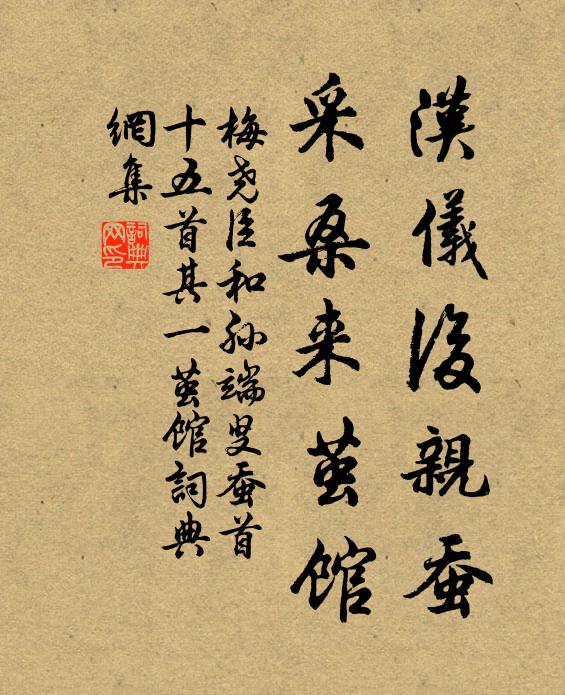 漢儀後親蚕
采桑来茧馆
梅尧臣和孙端叟蚕首
十五首其一茧馆詞典
網集
詞典
网印